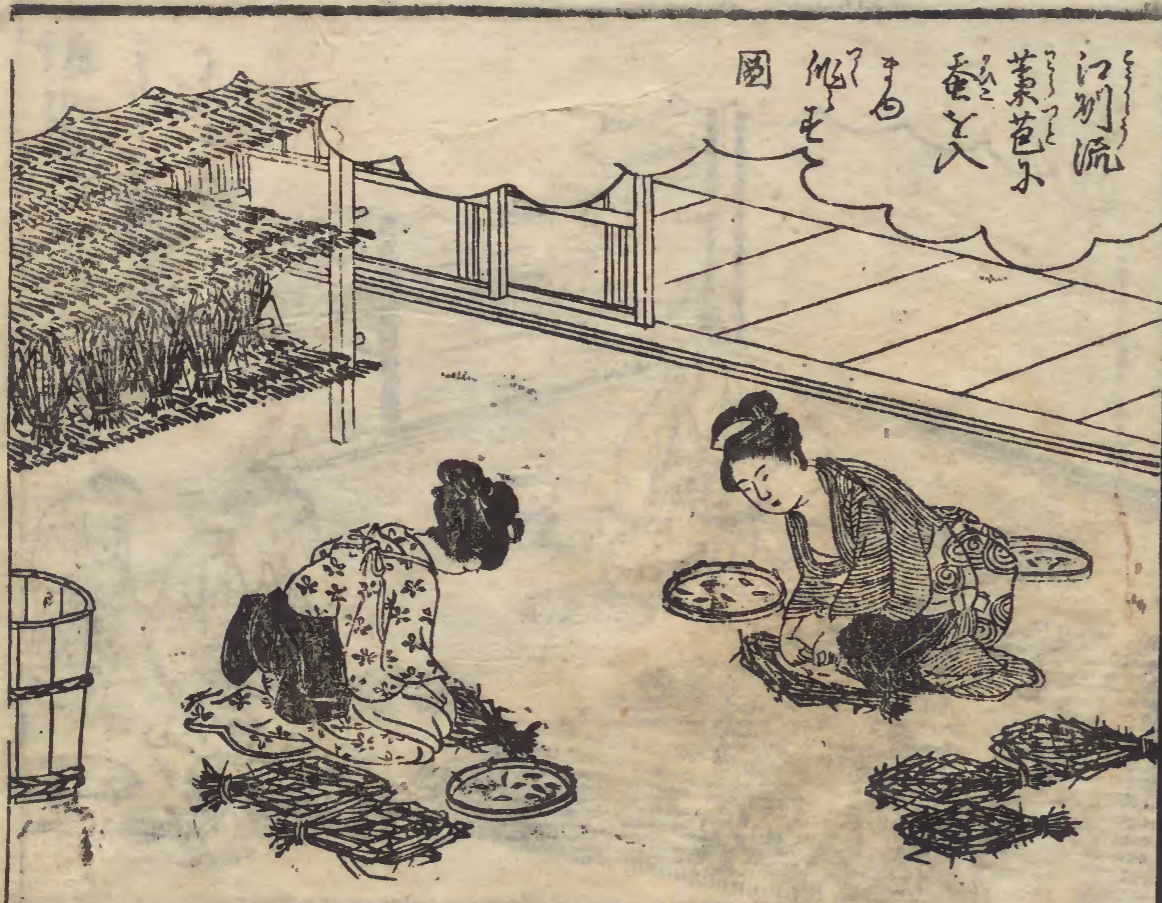 江州流
藁苞に
蚕を入
まゆ
作らす
圖